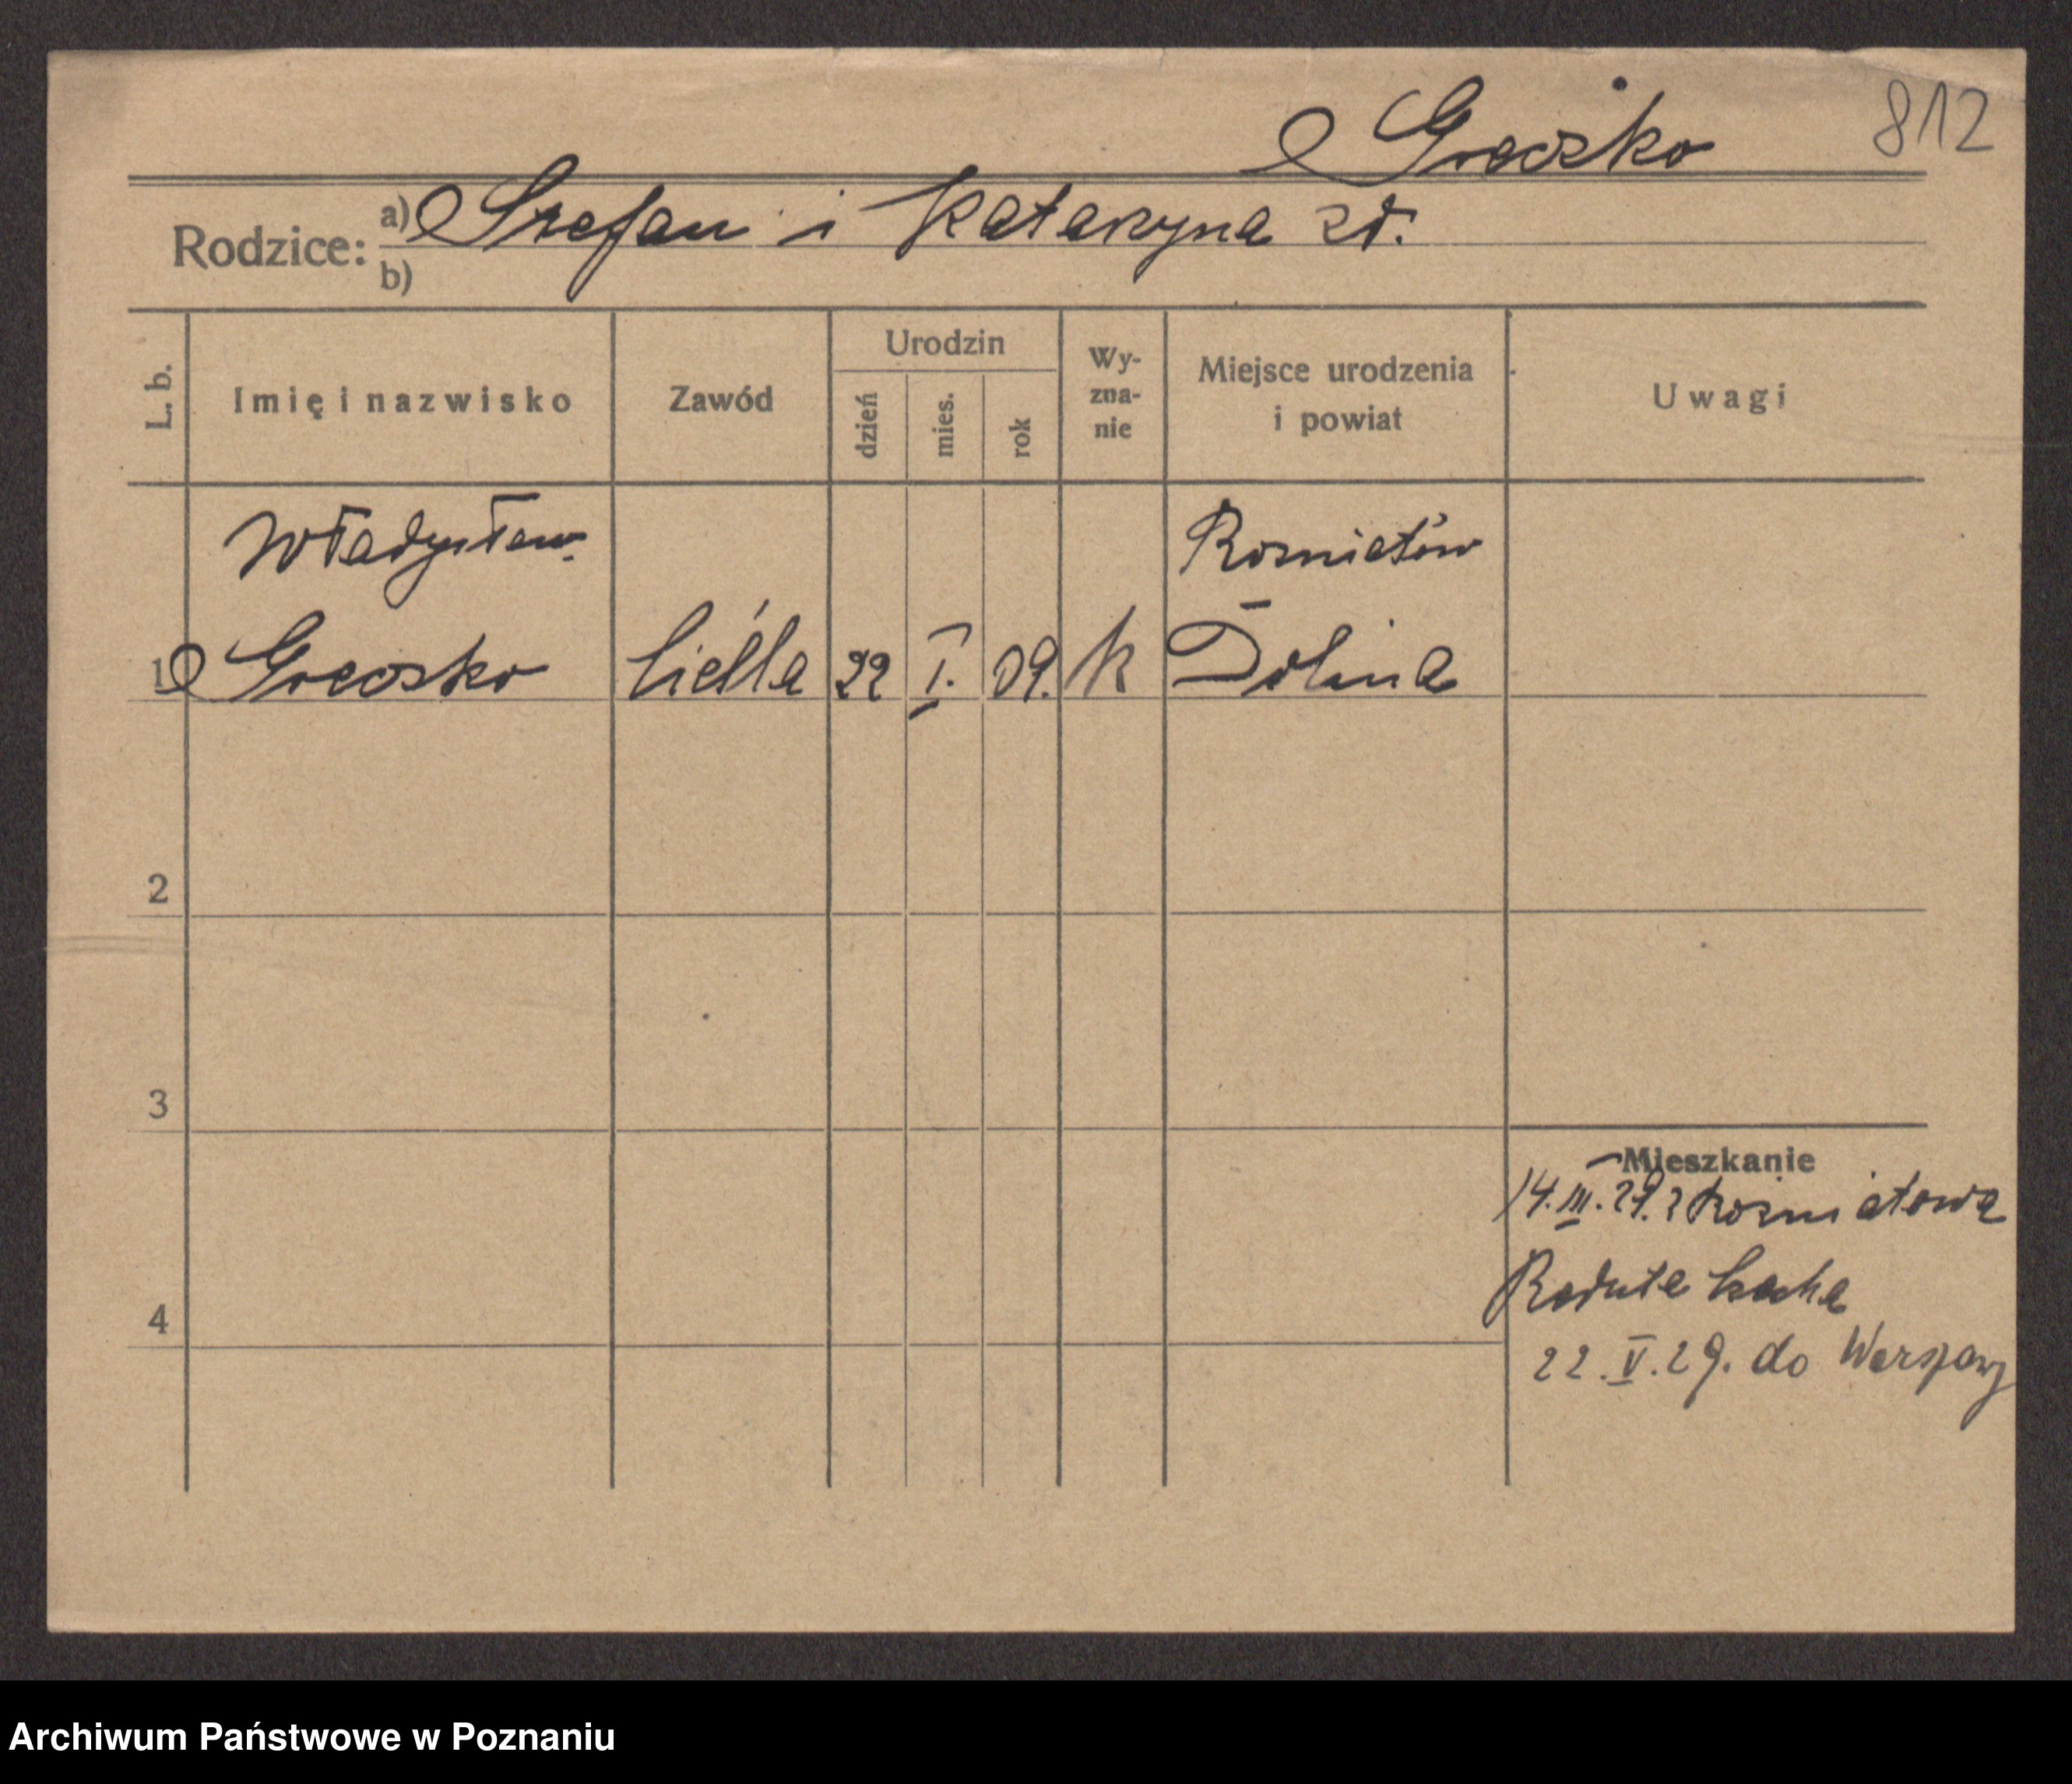 Greczko 812
Rodzice: a) Stefan i Katarzyna zd.
b)
L. b. Imię i nazwisko Zawód Urodzin dzień mies. rok Wyznanie Miejsce urodzenia i powiat Uwagi
Władysław Rozniatów
1 Greczko cieśla 22 I. 09. k Dolina
2
3
4
Mieszkanie
14.III.29. z Rozniatowa
Reduta
22.V.29. do Warszawy
Archiwum Państwowe w Poznaniu